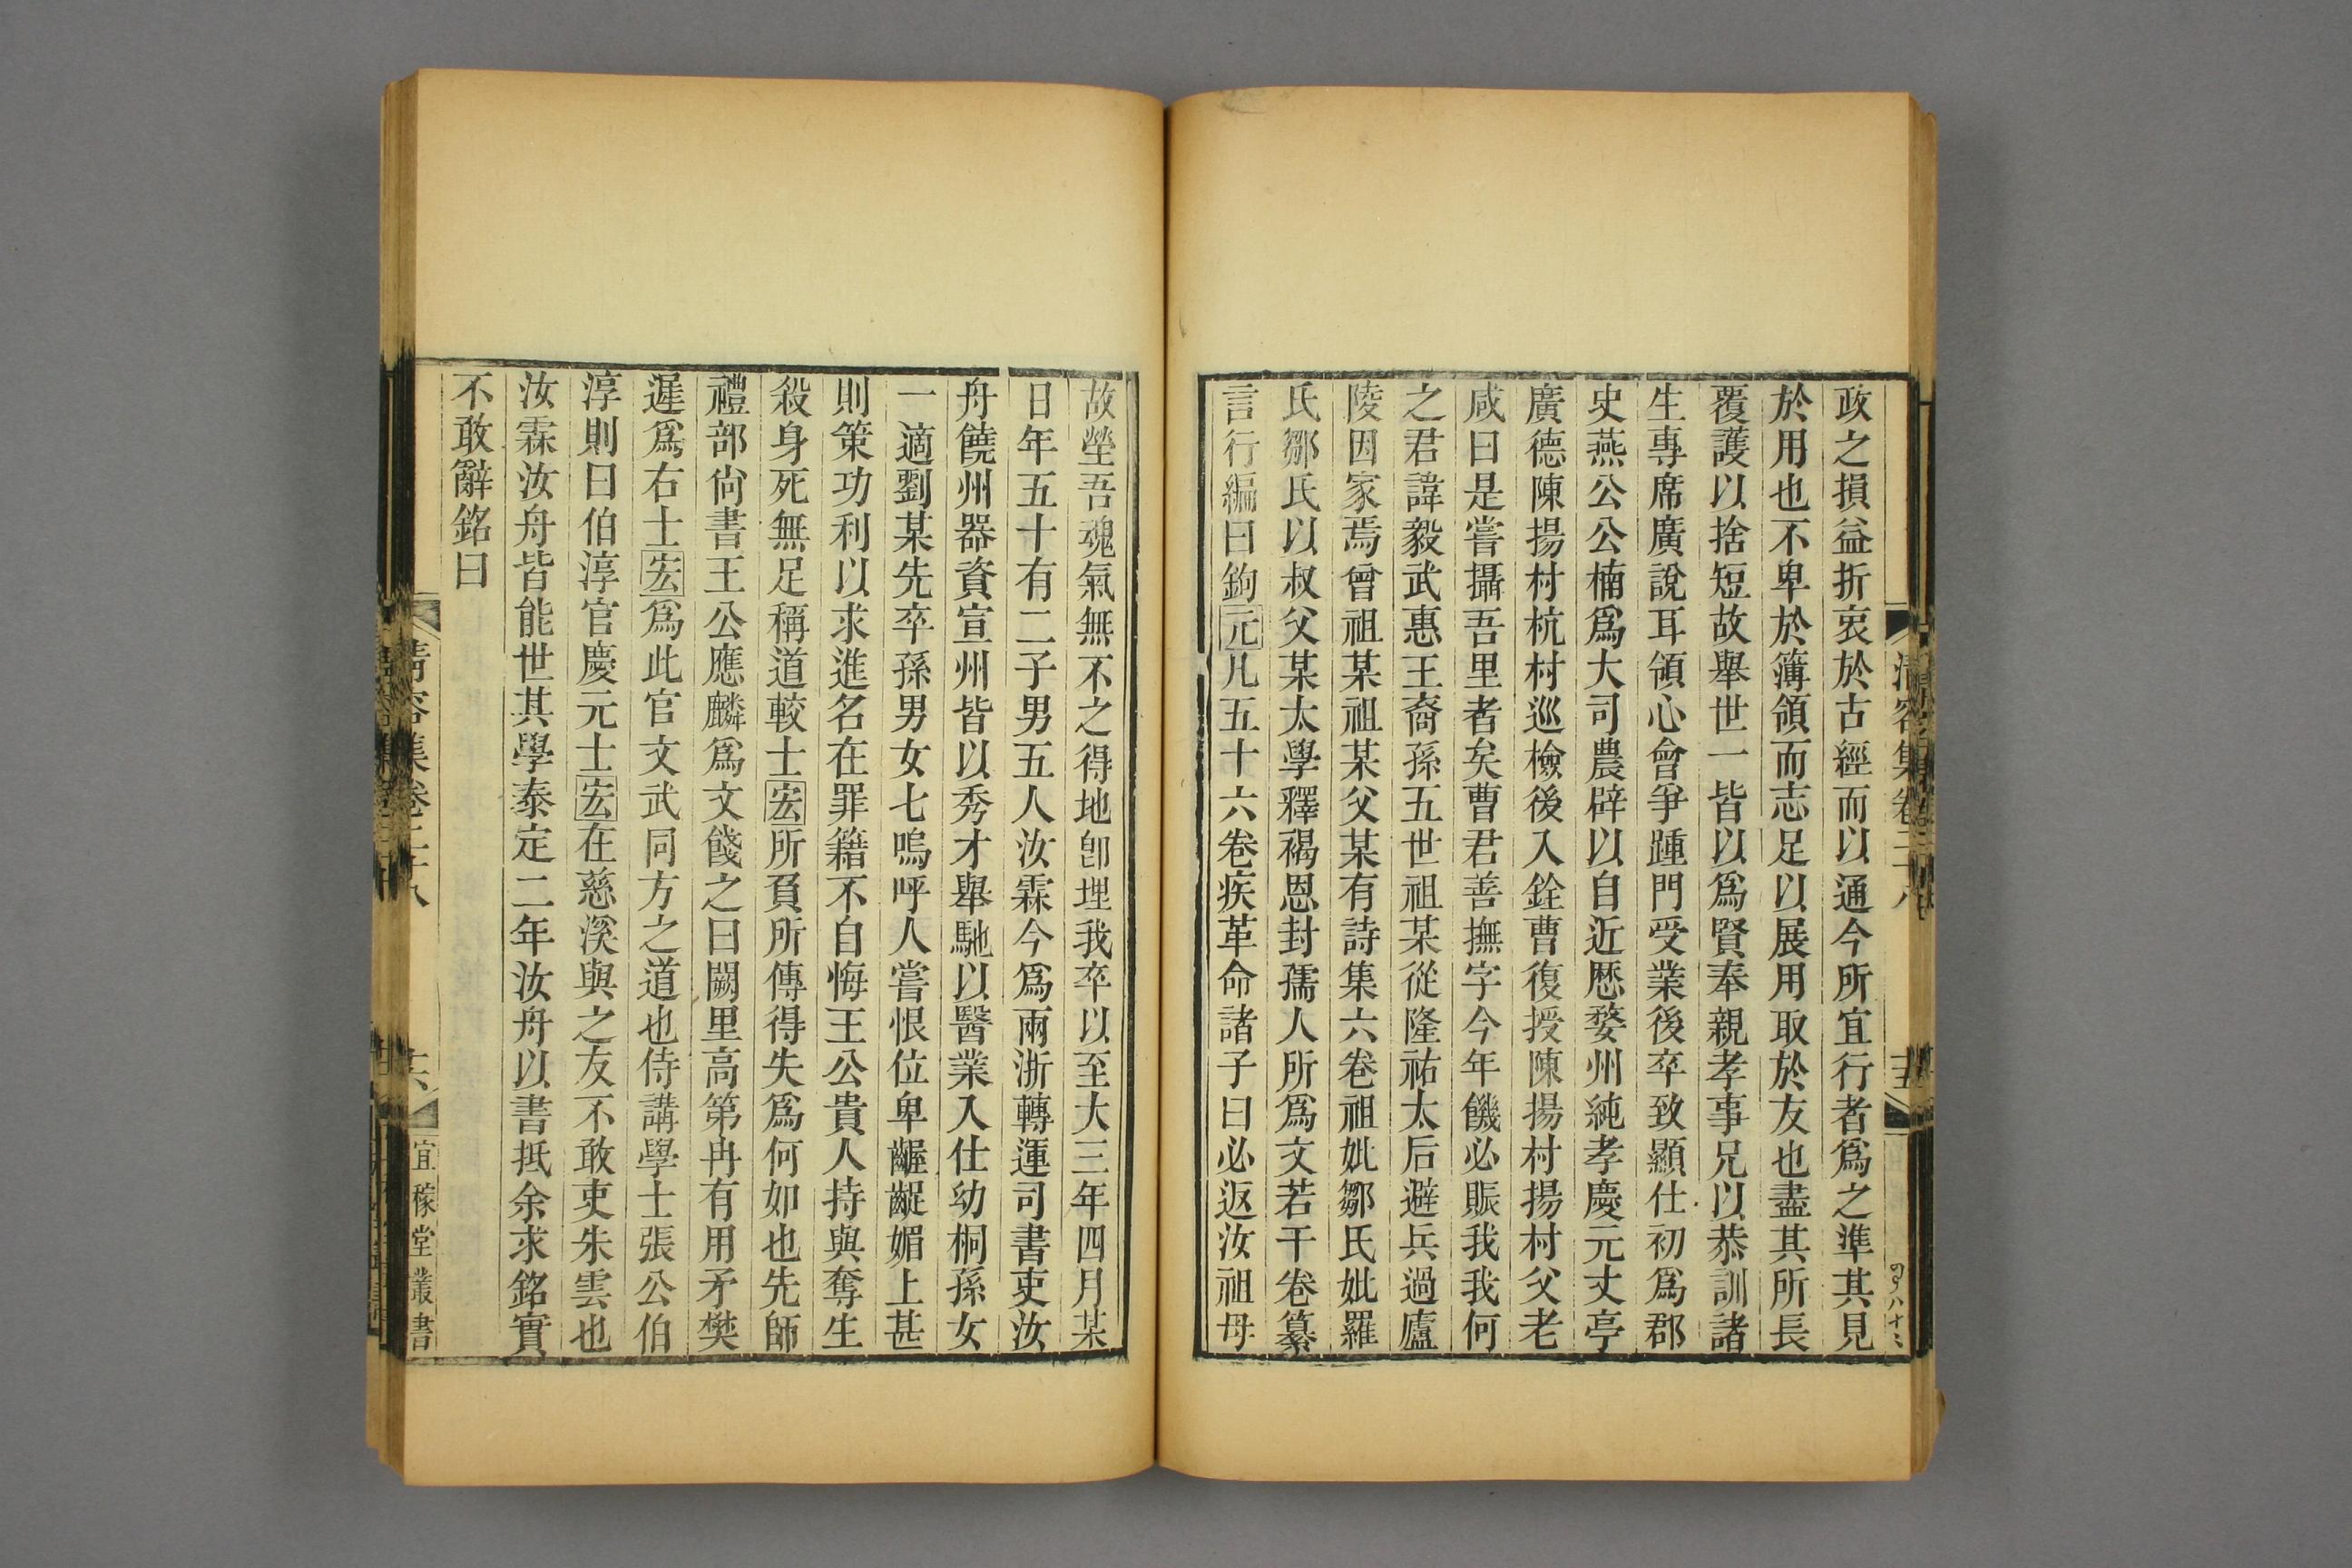 政之損益折衷於古經而以通今所宜行者爲之準其見
於用也不卑於簿領而志足以展用取於友也盡其所長
覆護以捨短故舉世一皆以爲賢奉親孝事兄以恭訓諸
生專席廣說耳領心會爭踵門受業後卒致顯仕初爲郡
史燕公公楠爲大司農辟以自近歷婺州純孝慶元丈亭
廣德陳揚村杭村巡檢後入銓曹復授陳揚村揚村父老
咸曰是嘗攝吾里者矣曹君善撫字今年饑必賑我我何
之君諱毅武惠王裔孫五世祖某從隆祐太后避兵過廬
陵因家焉曾祖某祖某父某有詩集六卷祖妣鄒氏妣羅
氏鄒氏以叔父某太學釋褐恩封孺人所爲文若干卷纂
言行編曰鉤元凡五十六卷疾革命諸子曰必返汝祖母
故塋吾魂氣無不之得地卽埋我卒以至大三年四月某
日年五十有二子男五人汝霖今爲兩浙轉運司書吏汝
舟饒州器資宣州皆以秀才舉馳以醫業入仕幼桐孫女
一適劉某先卒孫男女七嗚呼人嘗恨位卑齷齪媚上甚
則策功利以求進名在罪籍不自悔王公貴人持與奪生
殺身死無足稱道較士宏所負所傳得失爲何如也先師
禮部尙書王公應麟爲文餞之曰闕里高第冉有用矛樊
遲爲右士宏爲此官文武同方之道也侍講學士張公伯
淳則曰伯淳官慶元士宏在慈溪與之友不敢吏朱雲也
汝霖汝舟皆能世其學泰定二年汝舟以書抵余求銘實
不敢辭銘曰
清容集卷二十八
十六
宜稼堂叢書